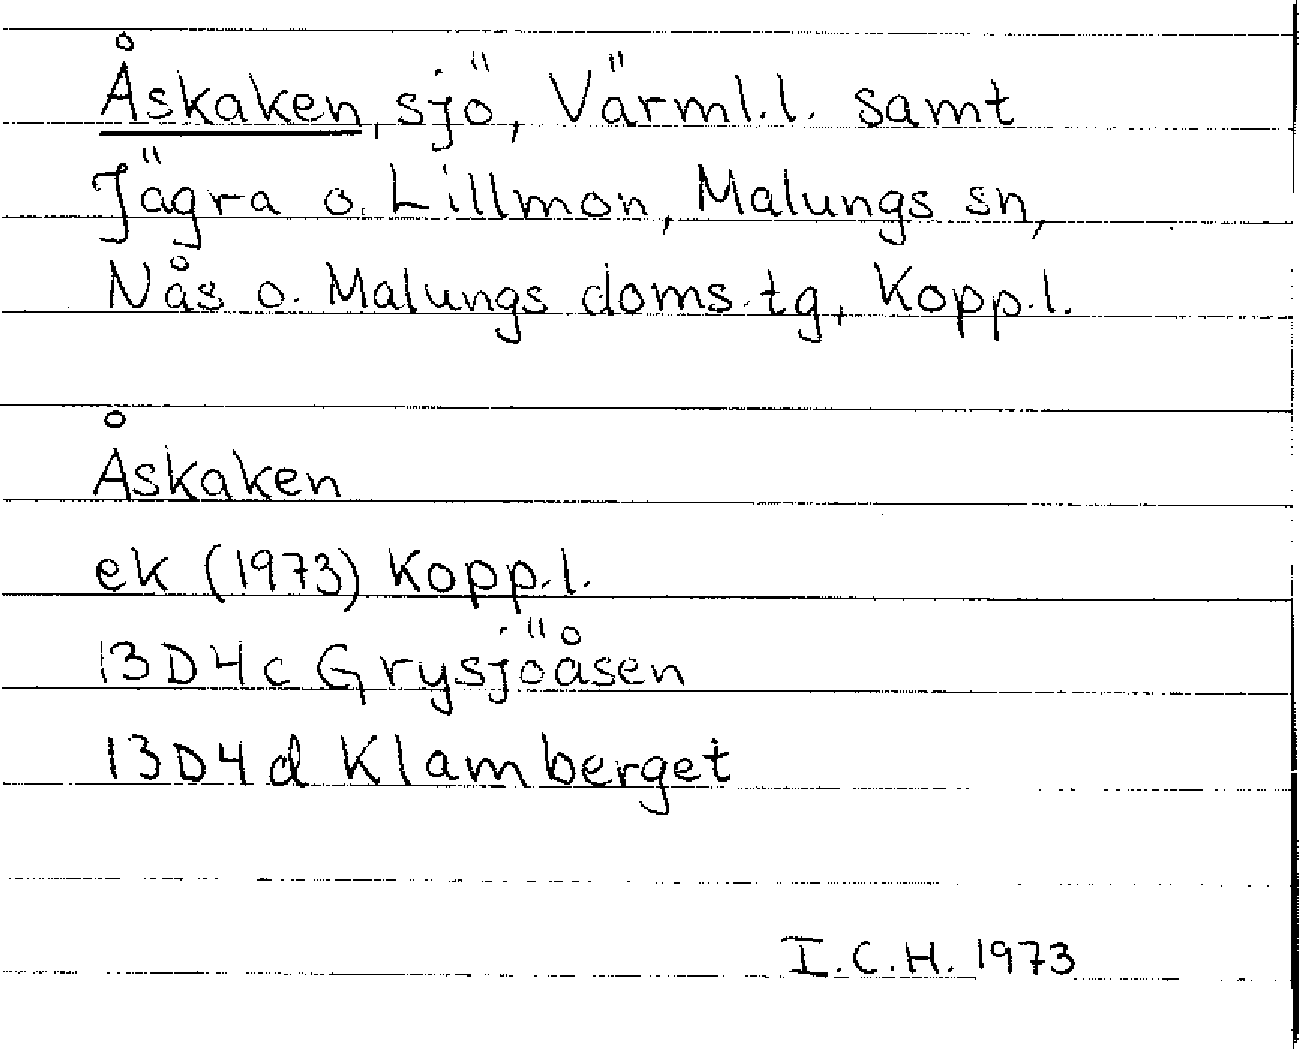 Åskaken, sjö, Värml.l. samt
Jägra o. Lillmon, Malungs sn,
Nås o. Malungs doms.tg, Kopp.l.
Åskaken
ek (1973) Kopp.l.
13D4c Grysjöåsen
13D4d Klamberget
I.C.H. 1973